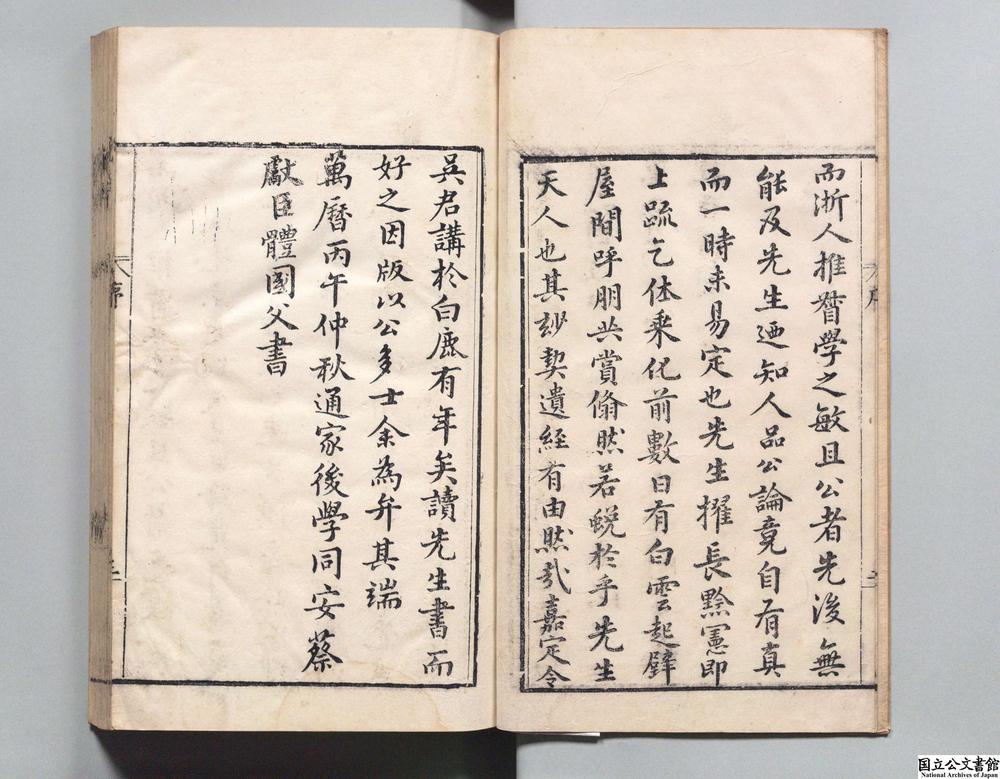 而浙人推督學之敏且公者先後無
能及先生迺知人品公論竟自有真
而一時未易定也先生擢長黔憲即
上疏乞休乘化前數日有白雲起臂
屋間呼朋共賞翛然若蛻於乎先生
天人也其玅契遺經有由然哉嘉定令
吳君講於白鹿有年矣讀先生書而
好之因版以公多士余為弁其端
萬曆丙午仲秋通家後學同安蔡
獻臣體國父書
序
国立公文書館
National Archives of Japan